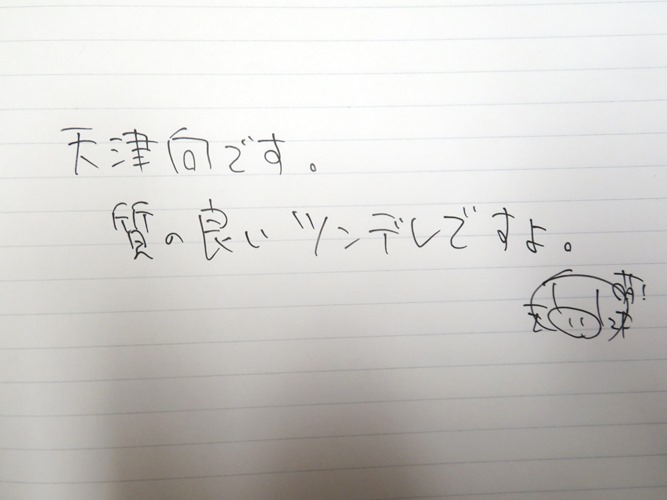 天津向です。
質の良いツンデレですよ。